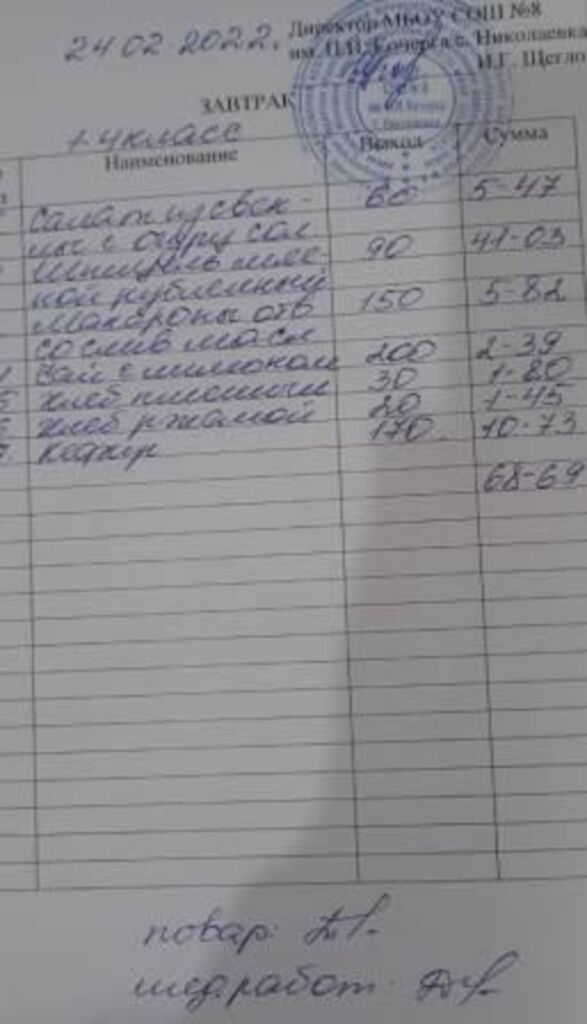 24.02.2022. Директор МБОУ СОШ №8
им. Ц.Л. Кочерга с. Николаевка
И.Г. Щегло
ЗАВТРАК
1-4 класс
Наименование Выход Сумма
Салат из свек- 60 5-47
лы с огур сол
Шницель мяс- 90 41-03
ной рубленный
Макароны отв 150 5-82
со слив масл
Чай с лимоном 200 2-39
хлеб пшеничн 30 1-80
хлеб ржаной 20 1-45
кефир 170. 10-73
68-69
повар
мед.работ.